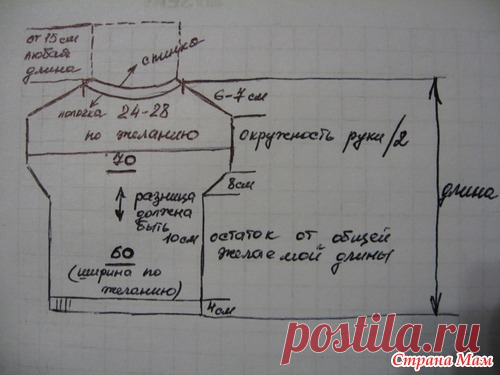 от 15 см
любая
длина
спинка
полочка 24-28
по желанию
6-7 см
окружность руки/2
70
8 см
разница
должна
быть
10 см
остаток от общей
желаемой длины
60
(ширина по
желанию)
4 см
длина
postila.ru
Страна Мам